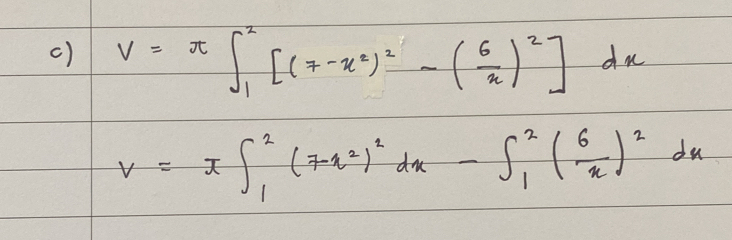 c) V = π ∫₁² [(7-x²)² - (6/x)²] dx
V = π ∫₁² (7-x²)² dx - ∫₁² (6/x)² dx